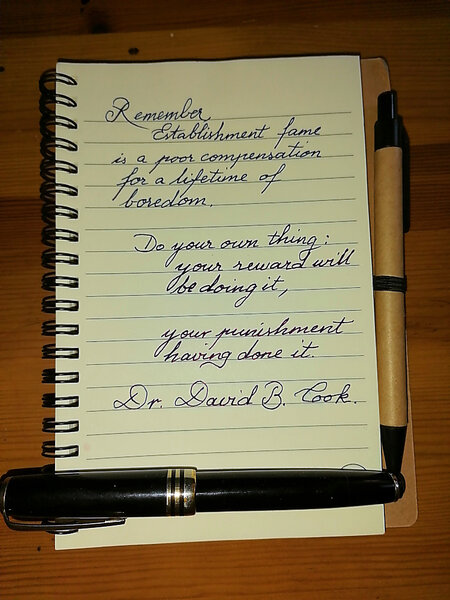 Remember
Establishment fame
is a poor compensation
for a lifetime of
boredom.
Do your own thing:
your reward will
be doing it,
your punishment
having done it.
Dr. David B. Cook.